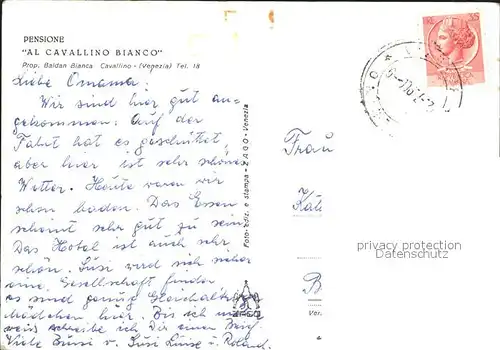 PENSIONE
"AL CAVALLINO BIANCO"
Prop. Baldan Bianca Cavallino - (Venezia) Tel. 18
Liebe Omama!
Wir sind hier gut an-
gekommen. Auf der
Fahrt hat es geschüttet,
aber hier ist sehr schönes
Wetter. Heute waren wir
schon baden. Das Essen
scheint sehr gut zu sein
Das Hotel ist auch sehr
schön. Susi wird sich sicher
eine Gesellschaft finden,
es sind genug Gleichaltrige
Mädchen hier. Bis ich
weiß schreibe ich Dir einen
Viele Bussi v. Susi Luise u. Roland.
Foto-Ediz. e stampa - ZAGO - Venezia
Frau
B
Ver.
privacy protection
Datenschutz